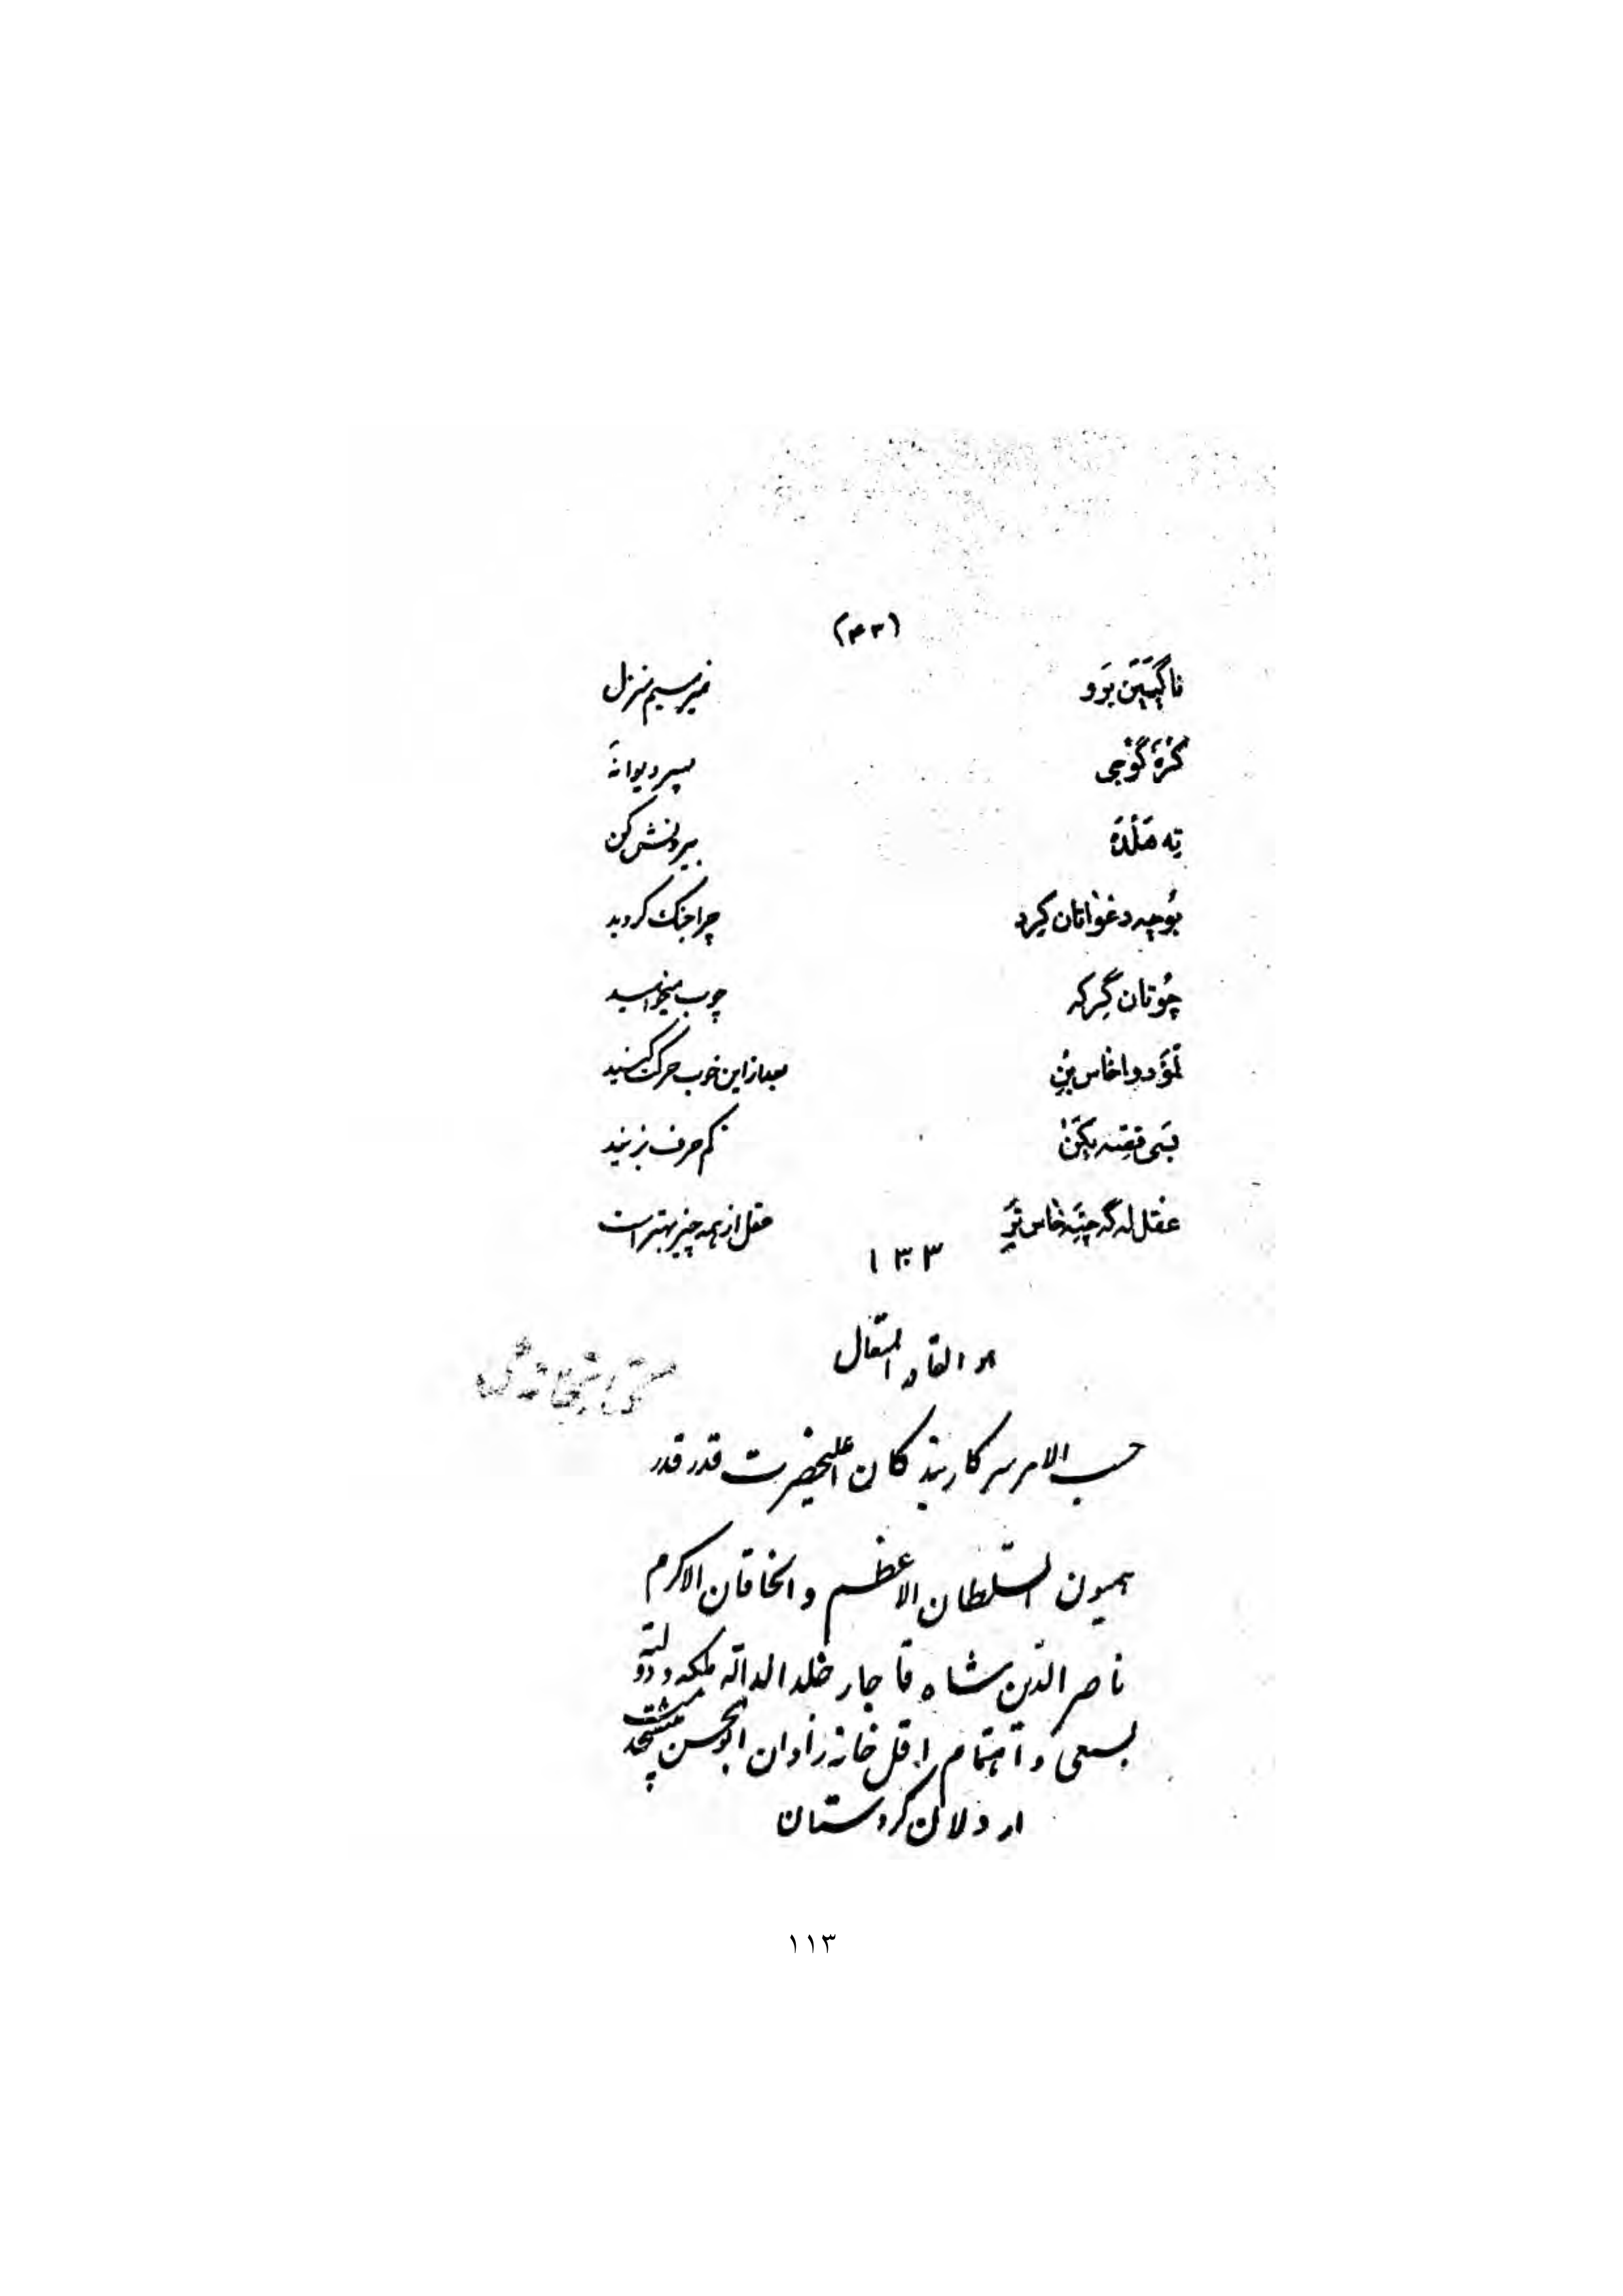 (۴۳)
ناگَیَین یَوَو نمیرسیم منزل
کُرَه گَوجی پسر دیوانهٔ
یَه مَلَدَه بیرونش کن
بُوچه دغواتان کِرد چرا جنک کردید
چُوتان گِرکه چوب میخواهید
لَمَؤدوا خاس بِن بعد از این خوب حرکت کنید
بَسی قصه بِکَن کم حرف بزنید
عقل له گه چِیَه خاس تِرَ عقل از همه چیز بهتر است
۱۳۰۳
هو القادر المتعال
حسب الامر سرکار بندکان اعلیحضرت قدر قدر
همیون السّلطان الاعظم والخاقان الاکرم
ناصر الدّین شاه قاجار خلد الله ملکه و دولته
بسعی و اهتمام اقل خانه زادان ابوالحسن
اردلان کردستان
۱۱۳